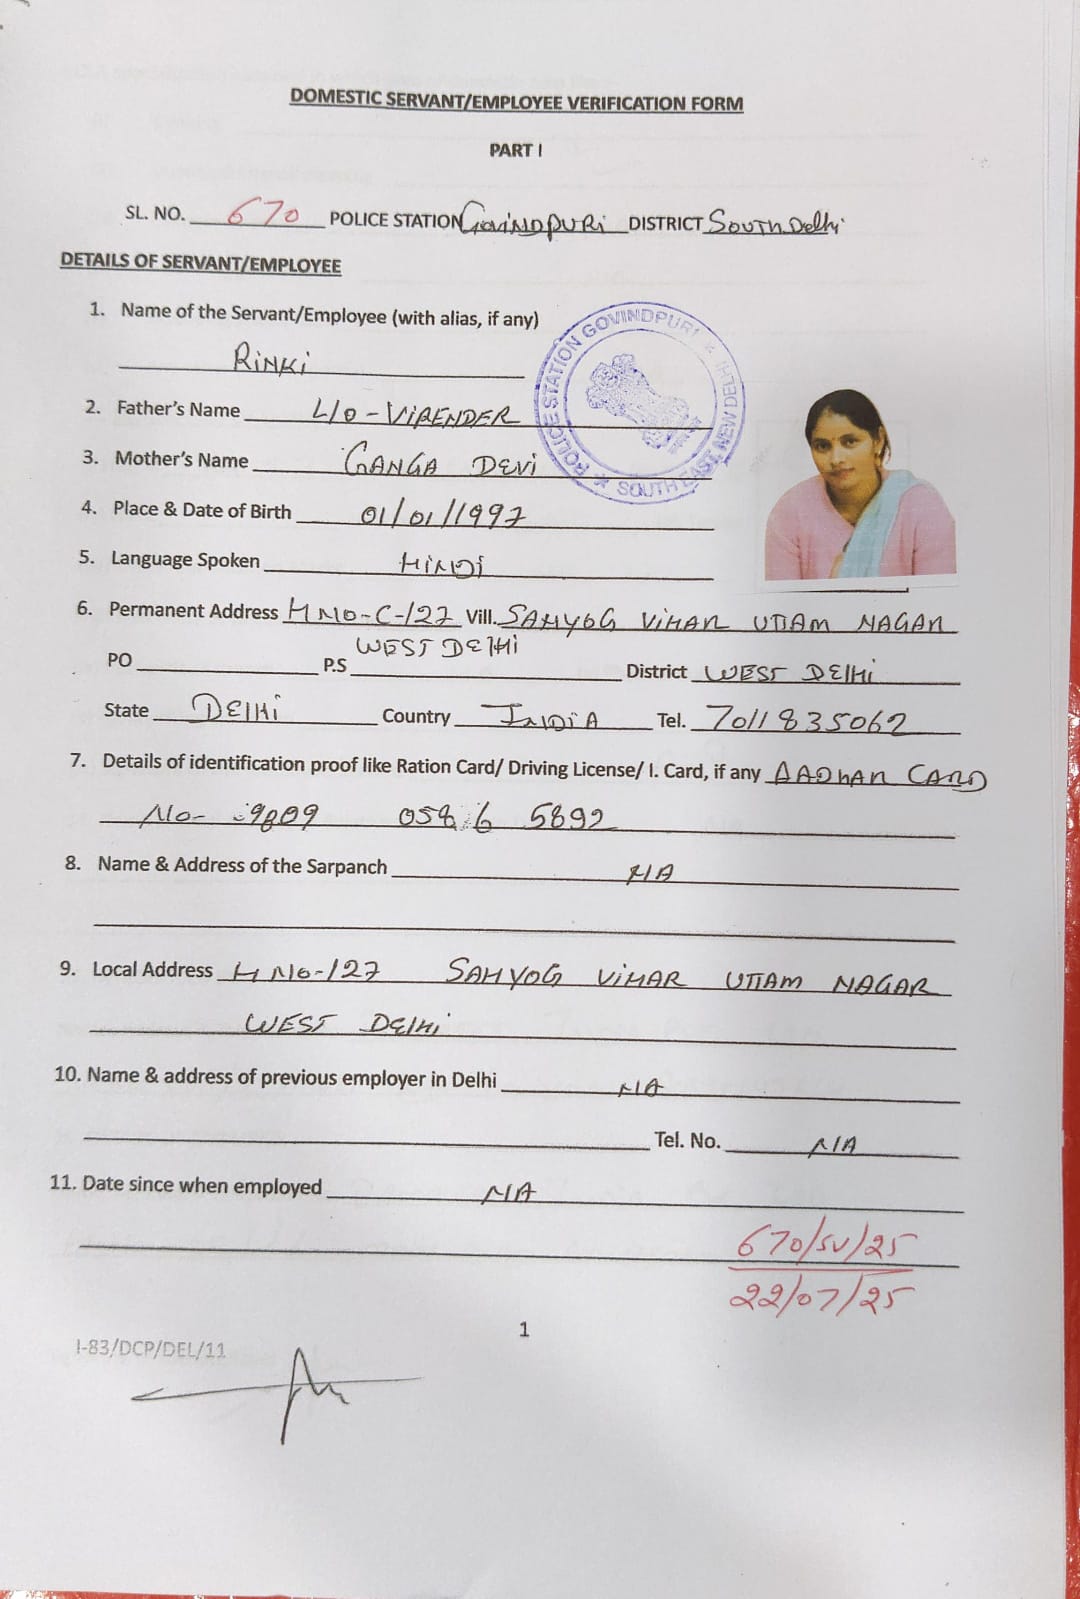 DOMESTIC SERVANT/EMPLOYEE VERIFICATION FORM
PART I
SL. NO. 670 POLICE STATION GOVINDPURI DISTRICT SOUTH Delhi
DETAILS OF SERVANT/EMPLOYEE
1. Name of the Servant/Employee (with alias, if any)
RiNKi
POLICE STATION GOVINDPURI * SOUTH EAST, NEW DELHI *
2. Father's Name L/O - ViRENDER
3. Mother's Name GANGA DEVi
4. Place & Date of Birth 01/01/1997
5. Language Spoken HiNDi
6. Permanent Address H NO-C-127 Vill. SAHYOG ViHAR UTTAM NAGAR
WEST DElHi
PO P.S District WEST DElHi
State DElHi Country INDiA Tel. 7011835062
7. Details of identification proof like Ration Card/ Driving License/ I. Card, if any AADHAR CARD
No- 9809 0586 5892
8. Name & Address of the Sarpanch NA
9. Local Address H NO-127 SAHYOG ViHAR UTTAM NAGAR
WEST DElHi
10. Name & address of previous employer in Delhi NA
Tel. No. NIA
11. Date since when employed NA
670/SV/25
22/07/25
1
I-83/DCP/DEL/11